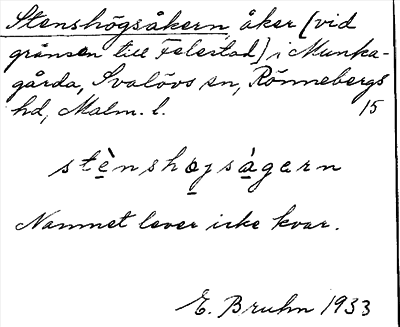 Stenshögsåkern, åker [vid
gränsen till Felestad] i Munka-
gårda, Svalövs sn, Rönnebergs
hd, Malm. l. 15
stè̱nsho̱jsà̱gærn
Namnet lever icke kvar.
E. Bruhn 1933